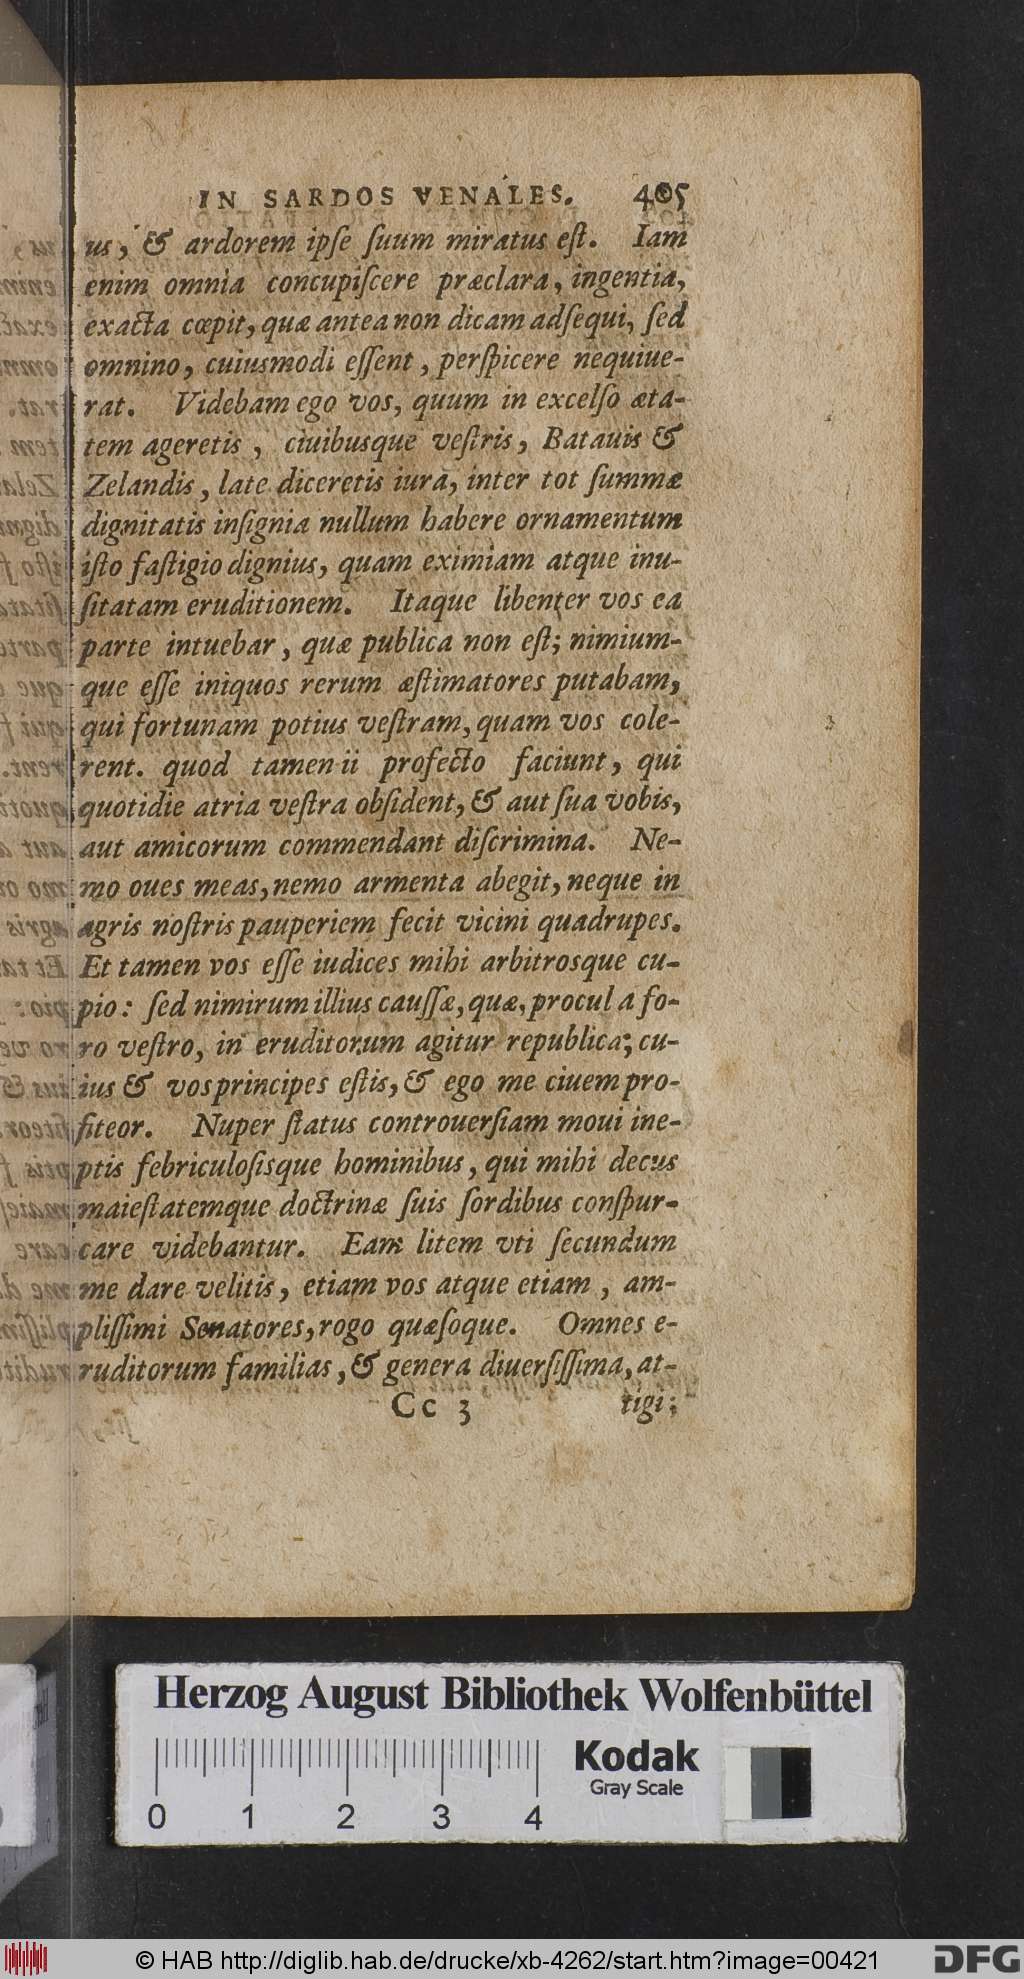 IN SARDOS VENALES. 405
us, & ardorem ipſe ſuum miratus eſt. Iam
enim omnia concupiſcere præclara, ingentia,
exacta cœpit, quæ antea non dicam adſequi, ſed
omnino, cuiusmodi eſſent, perſpicere nequiue-
rat. Videbam ego vos, quum in excelſo æta-
tem ageretis, ciuibusque veſtris, Batauis &
Zelandis, late diceretis iura, inter tot ſummæ
dignitatis inſignia nullum habere ornamentum
iſto faſtigio dignius, quam eximiam atque inu-
ſitatam eruditionem. Itaque libenter vos ea
parte intuebar, quæ publica non eſt; nimium-
que eſſe iniquos rerum æſtimatores putabam,
qui fortunam potius veſtram, quam vos cole-
rent. quod tamen ii profecto faciunt, qui
quotidie atria veſtra obſident, & aut ſua vobis,
aut amicorum commendant diſcrimina. Ne-
mo oues meas, nemo armenta abegit, neque in
agris noſtris pauperiem fecit vicini quadrupes.
Et tamen vos eſſe iudices mihi arbitrosque cu-
pio: ſed nimirum illius cauſſæ, quæ, procul a fo-
ro veſtro, in eruditorum agitur republica; cu-
ius & vos principes eſtis, & ego me ciuem pro-
fiteor. Nuper ſtatus controuerſiam moui ine-
ptis febriculoſisque hominibus, qui mihi decus
maieſtatemque doctrinæ ſuis ſordibus conſpur-
care videbantur. Eam litem vti ſecundum
me dare velitis, etiam vos atque etiam, am-
pliſſimi Senatores, rogo quæſoque. Omnes e-
ruditorum familias, & genera diuerſiſſima, at-
Cc 3 tigi;
Herzog August Bibliothek Wolfenbüttel
Kodak
Gray Scale
0 1 2 3 4
© HAB http://diglib.hab.de/drucke/xb-4262/start.htm?image=00421
DFG